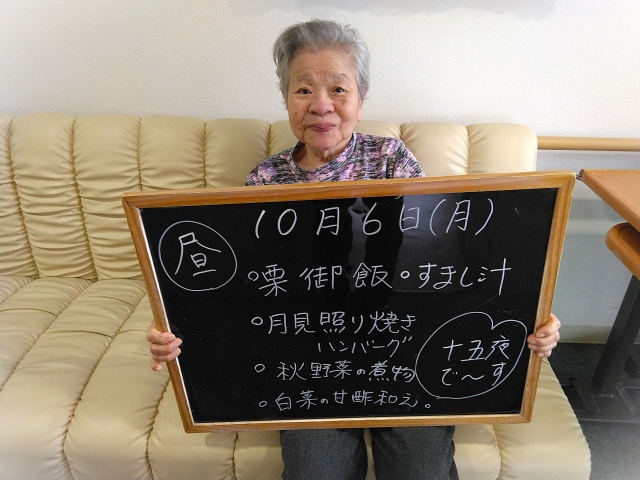 昼
10月6日(月)
○栗御飯○すまし汁
○月見照り焼き
ハンバーグ
○秋野菜の煮物
○白菜の甘酢和え。
十五夜
で〜す